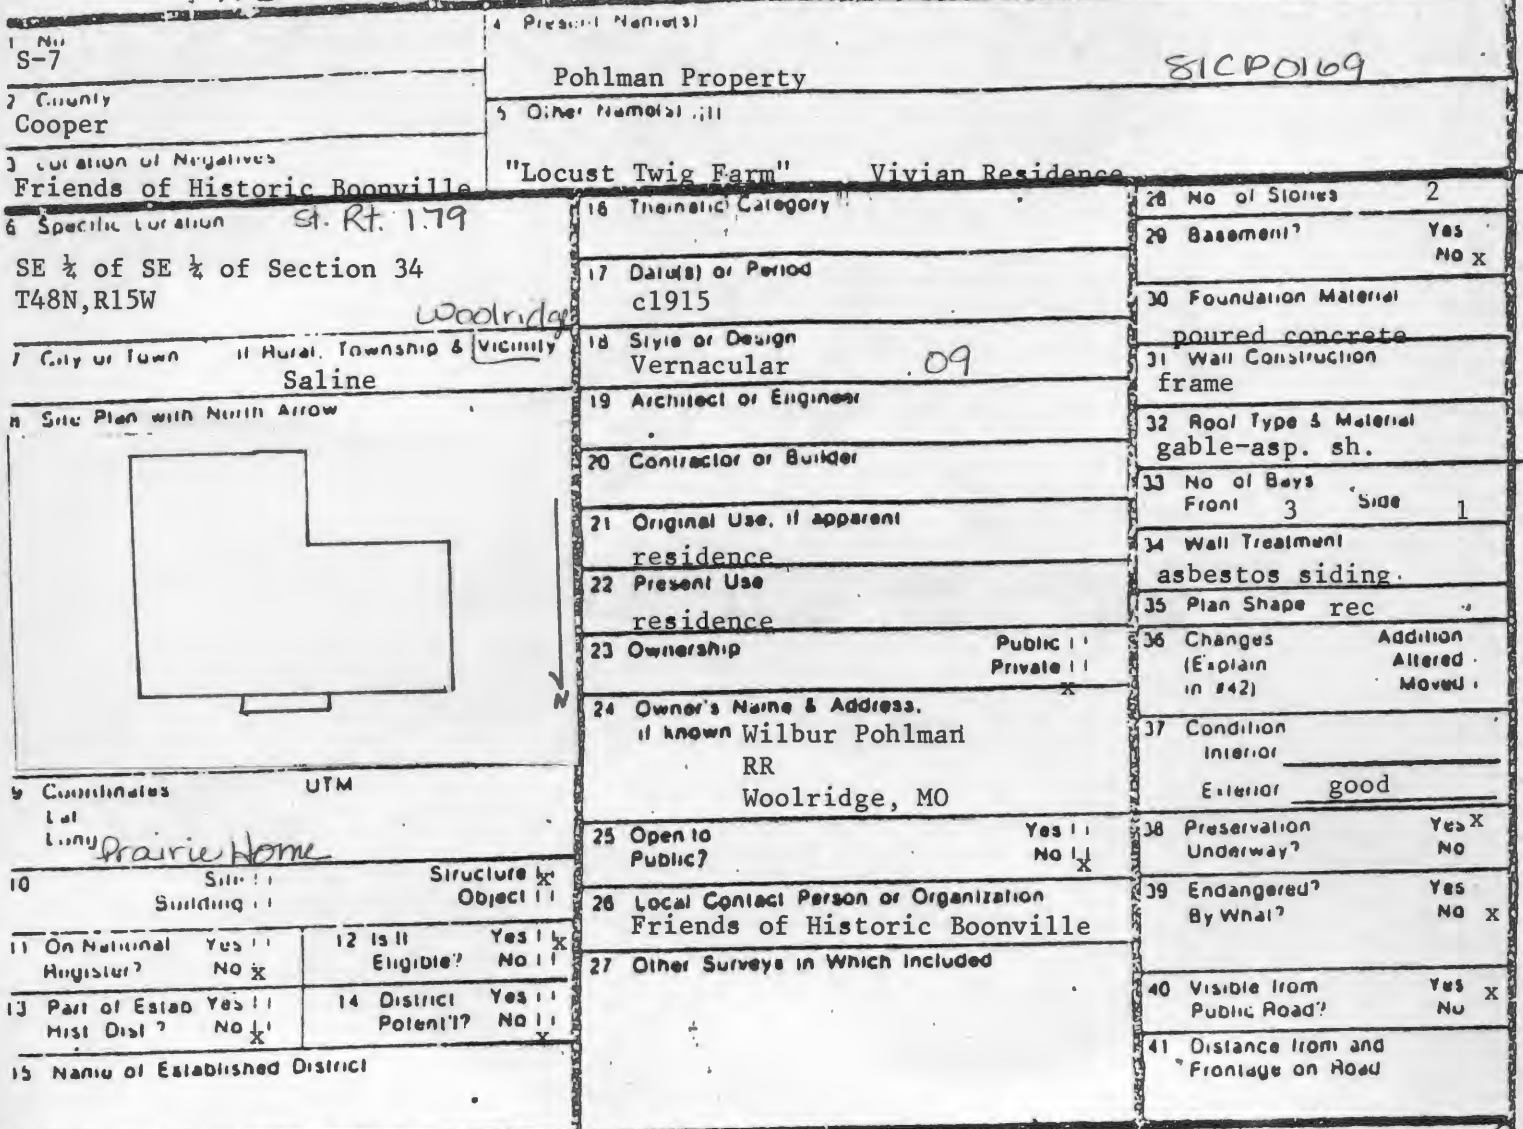 1 No
S-7
4 Present Name(s)
Pohlman Property
81CP0169
2 County
Cooper
5 Other Name(s)
3 Location of Negatives
Friends of Historic Boonville
"Locust Twig Farm" Vivian Residence
6 Specific Location St. Rt. 179
SE ¼ of SE ¼ of Section 34
T48N,R15W
Woolridge
7 City or Town If Rural, Township & Vicinity
Saline
8 Site Plan with North Arrow
N
9 Coordinates UTM
Lat
Long
Prairie Home
10 Site Structure x
Building Object
11 On National Register? Yes No x
12 Is It Eligible? Yes x No
13 Part of Estab Hist Dist? Yes No x
14 District Potent'l? Yes No x
15 Name of Established District
16 Thematic Category
17 Date(s) or Period
c1915
18 Style or Design
Vernacular .09
19 Architect or Engineer
20 Contractor or Builder
21 Original Use, if apparent
residence
22 Present Use
residence
23 Ownership Public
Private x
24 Owner's Name & Address,
if known Wilbur Pohlman
RR
Woolridge, MO
25 Open to Yes
Public? No x
26 Local Contact Person or Organization
Friends of Historic Boonville
27 Other Surveys in Which Included
28 No of Stories 2
29 Basement? Yes
No x
30 Foundation Material
poured concrete
31 Wall Construction
frame
32 Roof Type & Material
gable-asp. sh.
33 No of Bays
Front 3 Side 1
34 Wall Treatment
asbestos siding.
35 Plan Shape rec
36 Changes Addition
(Explain Altered
in #42) Moved
37 Condition
Interior
Exterior good
38 Preservation Yes x
Underway? No
39 Endangered? Yes
By What? No x
40 Visible from Yes x
Public Road? No
41 Distance from and
Frontage on Road